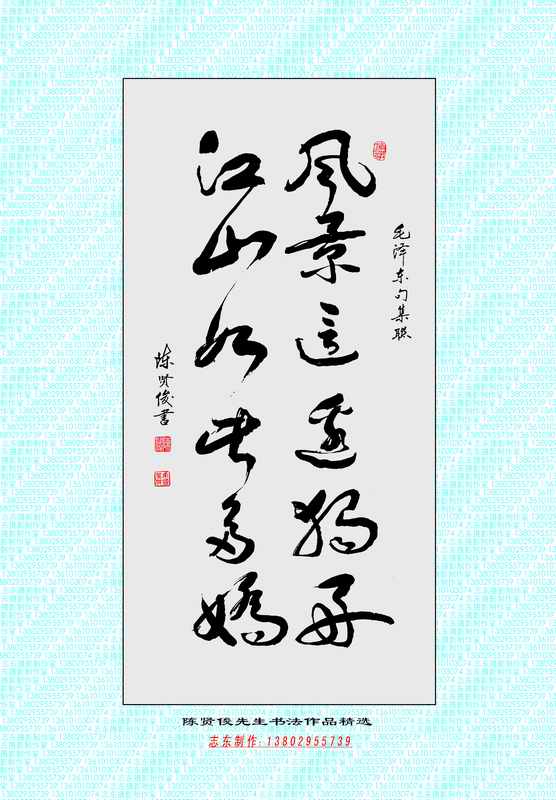 毛泽东句集联
风景這邊獨好
江山如此多嬌
陈贤俊書
陈贤俊先生书法作品精选
志东制作:13802955739